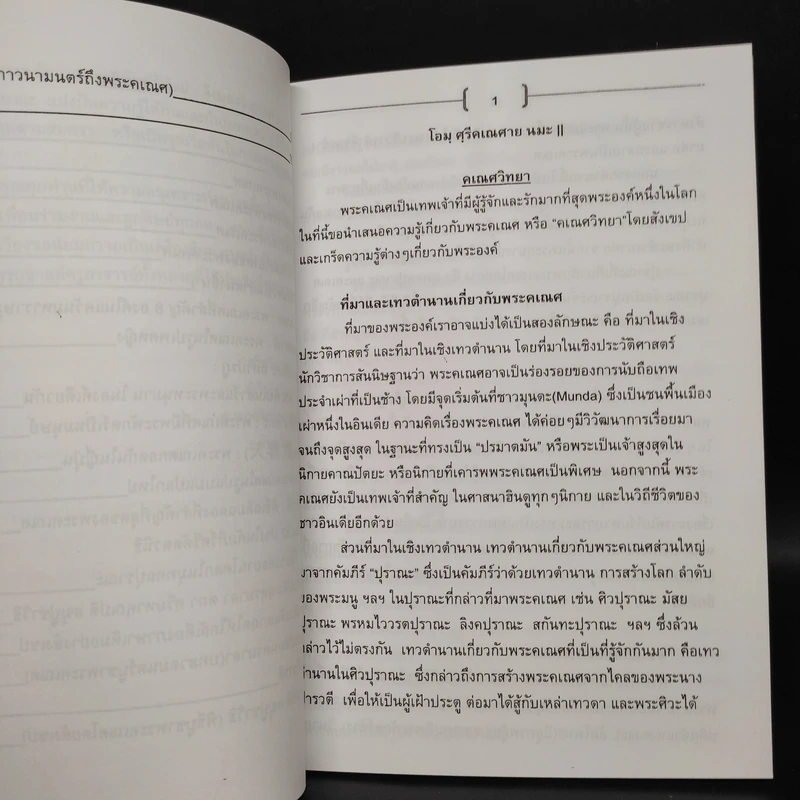 าวนามนตร์ถึงพระคเณศ)
1
โอมฺ ศฺรีคเณศาย นมะ ||
คเณศวิทยา
พระคเณศเป็นเทพเจ้าที่มีผู้รู้จักและรักมากที่สุดพระองค์หนึ่งในโลก
ในที่นี้ขอนำเสนอความรู้เกี่ยวกับพระคเณศ หรือ "คเณศวิทยา"โดยสังเขป
และเกร็ดความรู้ต่างๆเกี่ยวกับพระองค์
ที่มาและเทวตำนานเกี่ยวกับพระคเณศ
ที่มาของพระองค์เราอาจแบ่งได้เป็นสองลักษณะ คือ ที่มาในเชิง
ประวัติศาสตร์ และที่มาในเชิงเทวตำนาน โดยที่มาในเชิงประวัติศาสตร์
นักวิชาการสันนิษฐานว่า พระคเณศอาจเป็นร่องรอยของการนับถือเทพ
ประจำเผ่าที่เป็นช้าง โดยมีจุดเริ่มต้นที่ชาวมุนดะ(Munda) ซึ่งเป็นชนพื้นเมือง
เผ่าหนึ่งในอินเดีย ความคิดเรื่องพระคเณศ ได้ค่อยๆมีวิวัฒนาการเรื่อยมา
จนถึงจุดสูงสุด ในฐานะที่ทรงเป็น "ปรมาตมัน" หรือพระเป็นเจ้าสูงสุดใน
นิกายคาณปัตยะ หรือนิกายที่เคารพพระคเณศเป็นพิเศษ นอกจากนี้ พระ
คเณศยังเป็นเทพเจ้าที่สำคัญ ในศาสนาฮินดูทุกๆนิกาย และในวิถีชีวิตของ
ชาวอินเดียอีกด้วย
ส่วนที่มาในเชิงเทวตำนาน เทวตำนานเกี่ยวกับพระคเณศส่วนใหญ่
มาจากคัมภีร์ "ปุราณะ" ซึ่งเป็นคัมภีร์ว่าด้วยเทวตำนาน การสร้างโลก ลำดับ
ของพระมนู ฯลฯ ในปุราณะที่กล่าวที่มาพระคเณศ เช่น ศิวปุราณะ มัสย
ปุราณะ พรหมไววรตปุราณะ ลิงคปุราณะ สกันทะปุราณะ ฯลฯ ซึ่งล้วน
กล่าวไว้ไม่ตรงกัน เทวตำนานเกี่ยวกับพระคเณศที่เป็นที่รู้จักกันมาก คือเทว
ตำนานในศิวปุราณะ ซึ่งกล่าวถึงการสร้างพระคเณศจากไคลของพระนาง
ปารวตี เพื่อให้เป็นผู้เฝ้าประตู ต่อมาได้สู้กับเหล่าเทวดา และพระศิวะได้